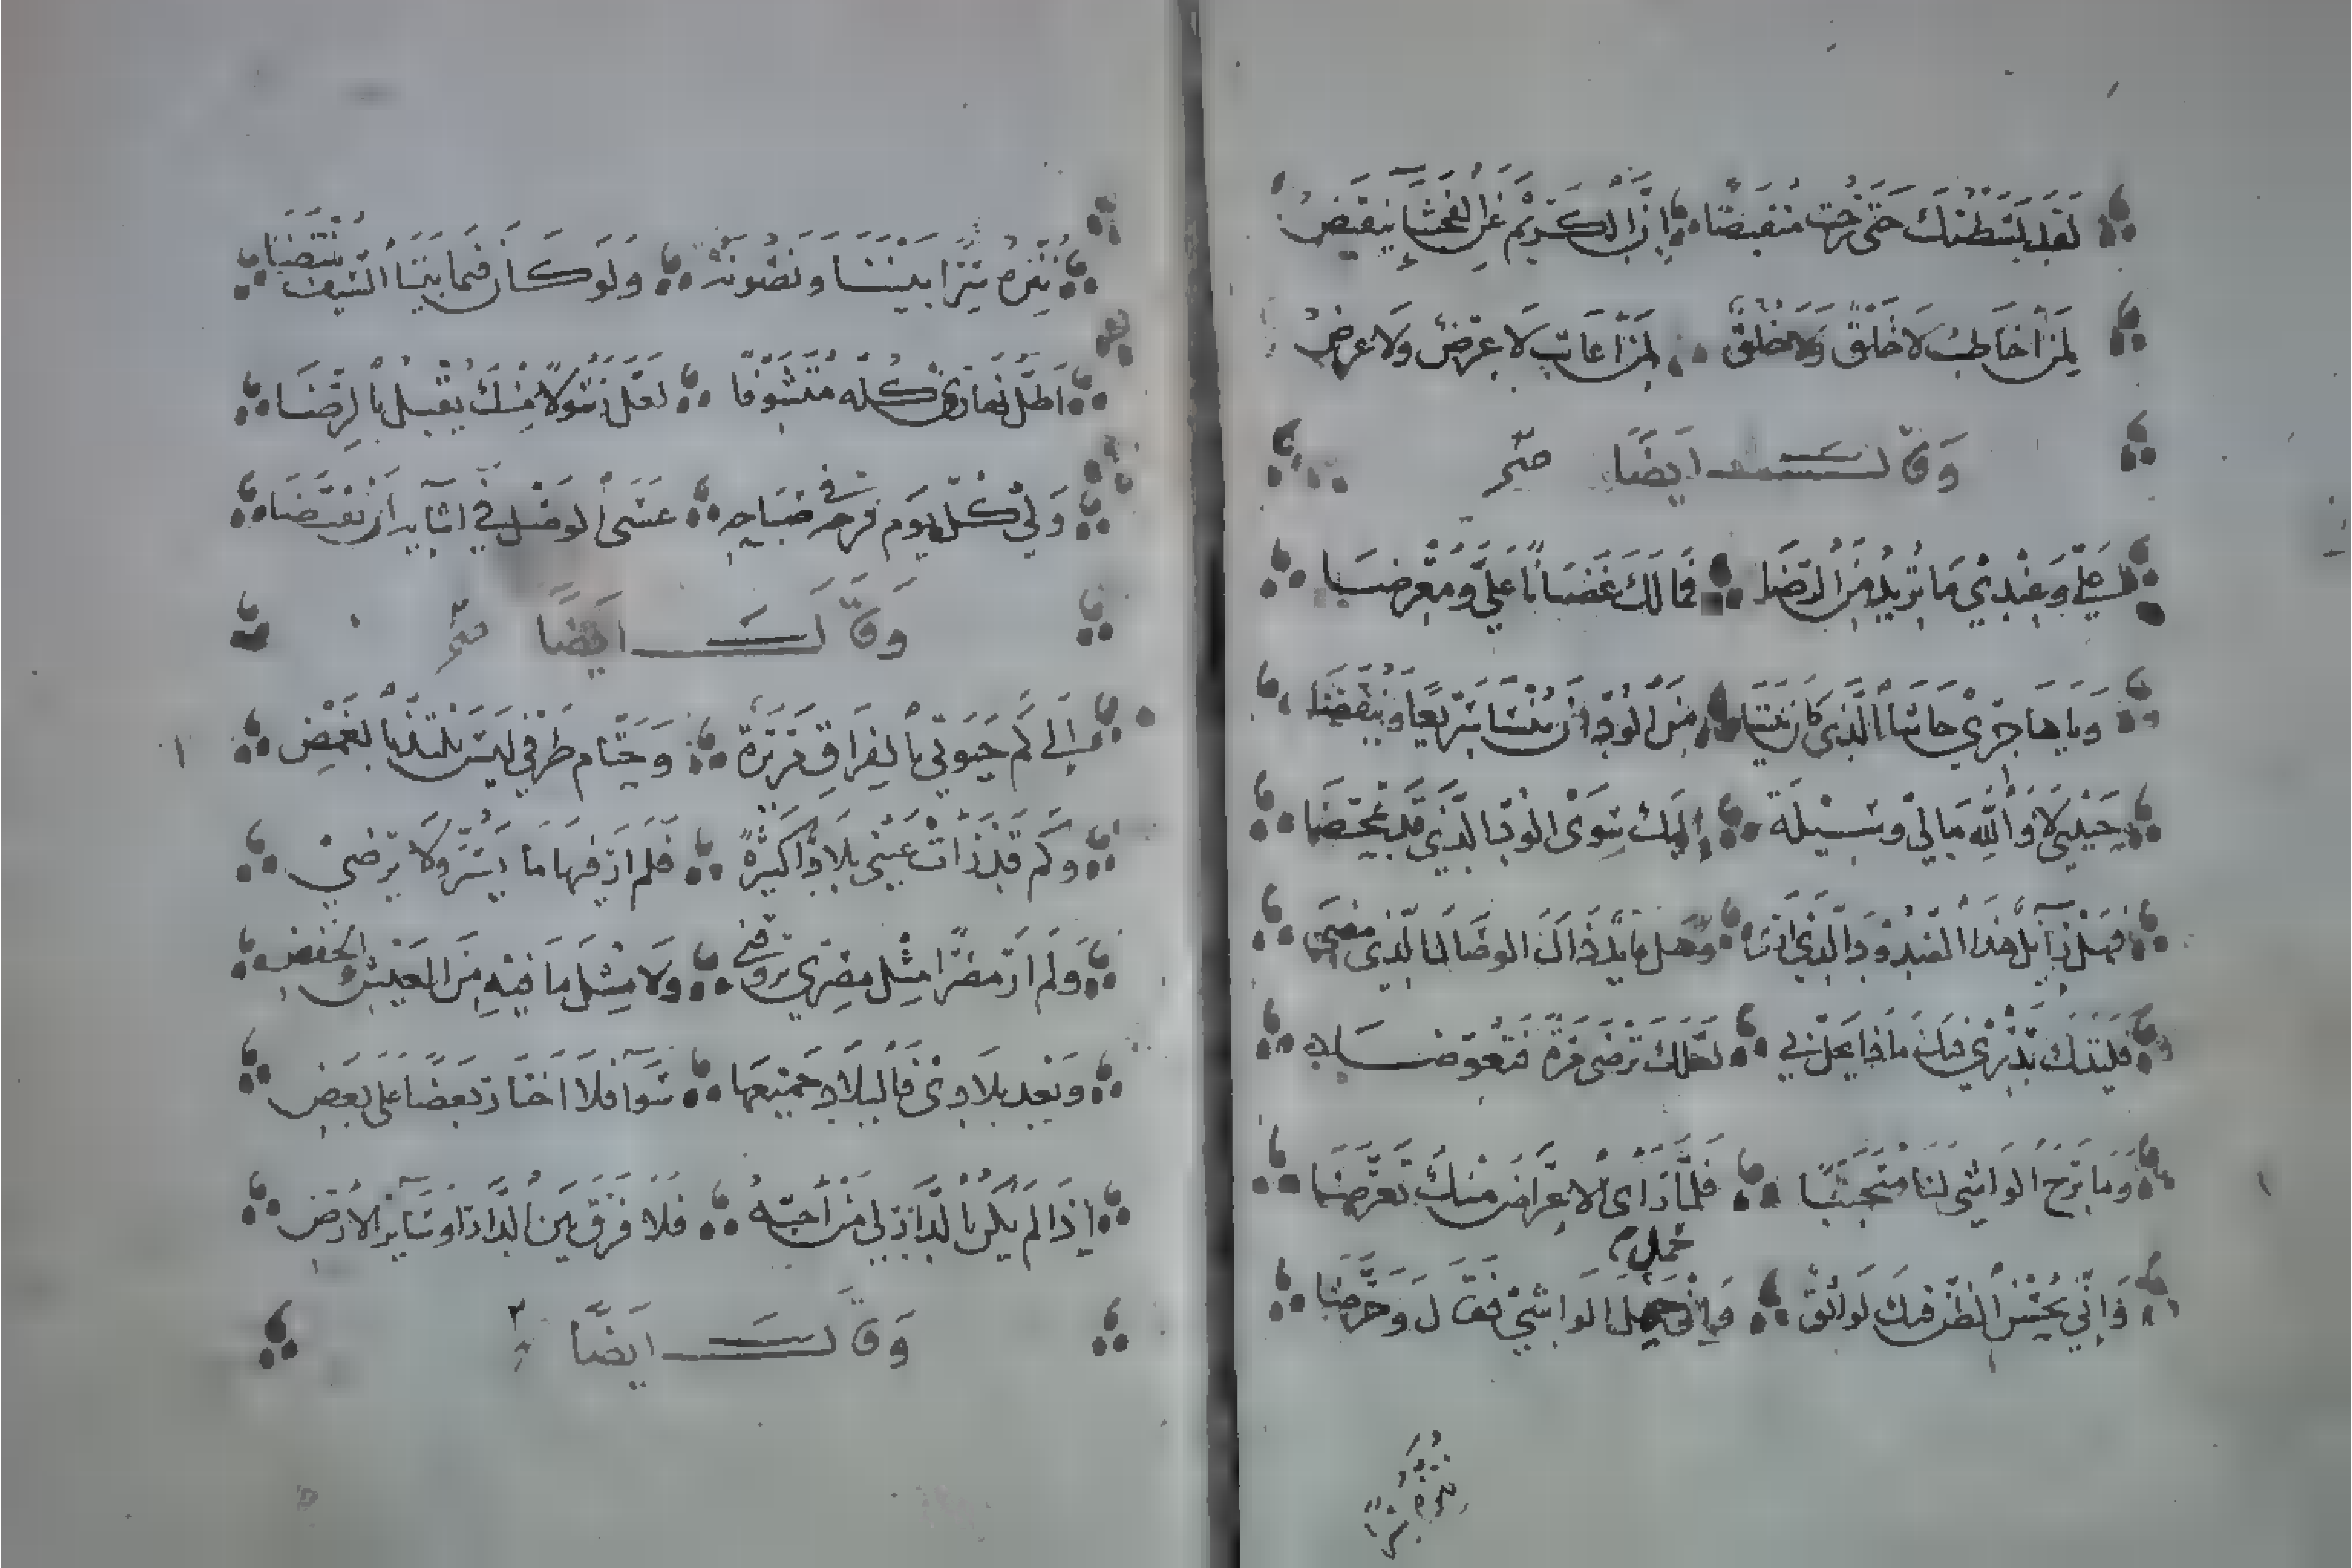 لَقَد بَسَطْتُكَ حَتَّى رُحْتَ مُنْقَبِضًا إِنَّ الْكَرِيْمَ عَنِ الْفَحْشَآءِ يَنْقَبِضُ
لِمَنْ أُخَاطِبُ لَا خَلْقٌ وَلَا خُلُقٌ لِمَنْ أُعَاتِبُ لَا عِرْضٌ وَلَا عَرَضُ
وَقَالَ ايضًا
عَلَيَّ وَعِنْدِيْ مَا تُرِيْدُ مِنَ الرِّضَا فَمَا لَكَ غَضْبَانًا عَلَيَّ وَمُعْرِضَا
وَيَا هَاجِرِيْ حَاشَا الَّذِيْ كَانَ بَيْنَنَا مِنَ الْوُدِّ انْ يُنْسَا سَرِيْعًا وَيُنْقَضَا
حَبِيْبِيَ لَا وَاللهِ مَا لِيْ وَسِيْلَةٌ إِلَيْكَ سِوَى الْوُدِّ الَّذِيْ قَدْ تَمَحَّضَا
فَهَلْ زَآئِلٌ هَذَا الصُّدُوْدُ الَّذِيْ ارَى وَهَلْ عَائِدٌ ذَاكَ الوِصَالُ الَّذِيْ مَضَى
فَلَيْتَكَ تَدْرِيْ فِيْكَ مَاذَا يَحِلُّ بِيْ لَعَلَّكَ تَرْضَى مَرَّةً فَتُعَوِّضَا
وَمَا بَرِحَ الْوَاشِيْ لَنَا مُتَجَنِّبًا فَلَمَّا رَأَى الْاِعْرَاضَ مِنْكَ تَعَرَّضَا
وَإِنِّيْ بِحُسْنِ الظَّنِّ فِيْكَ لَوَاثِقٌ وَإِنْ جَهِلَ الْوَاشِيْ فَقَالَ وَحَرَّضَا
نُنَزِّهُ سِرًّا
نُنَزِّهُ سِرًّا بَيْنَنَا وَنَصُوْنُهُ وَلَوْ كَانَ فِيْمَا بَيْنَنَا السَّيْفُ مُنْتَضَا
اَظَلُّ نَهَارِيْ كُلَّهُ مُتَشَوِّفًا لَعَلَّ رَسُوْلًا مِنْكَ يُقْبِلُ بِالرِّضَا
وَلِيْ كُلَّ يَوْمٍ فَرْحَةٌ فِيْ صَبَاحِهِ عَسَى الوَصْلُ فِيْ اثْنَآئِهِ انْ يُقَيَّضَا
وَقَالَ ايَضًا
إِلَى كَمْ حَيَوتِيْ بِالْفِرَاقِ مَرِيْرَةٌ وَحَتَّامَ طَرْفِيْ لَيْسَ يَلْتَذُّ بِالْغَمْضِ
وَكَمْ قَدْ رَاَتْ عَيْنِي بِلَادًا كَثِيْرَةً فَلَمْ ارَ فِيْهَا مَا يَسُرُّ وَلَا يُرْضِيْ
وَلَمْ ارَ مِصْرًا مِثْلَ مِصْرِيْ تَرُوْقُنِي وَلَا مِثْلَ مَا فِيْهِ مِنَ الْعَيْشِ وَالخَفْضِ
وَبَعْدَ بِلَادِيْ فَالْبِلَادُ جَمِيْعُهَا سَوَآءٌ فَلَا اخْتَارُ بَعْضًا عَلَى بَعْضِ
إِذَا لَمْ يَكُنْ بِالدَّارِ لِيْ مَنْ أُحِبُّهُ فَلَا فَرْقَ بَيْنَ الدَّارِ اوْ سَآئِرِ الارْضِ
وَقَالَ ايَضًا